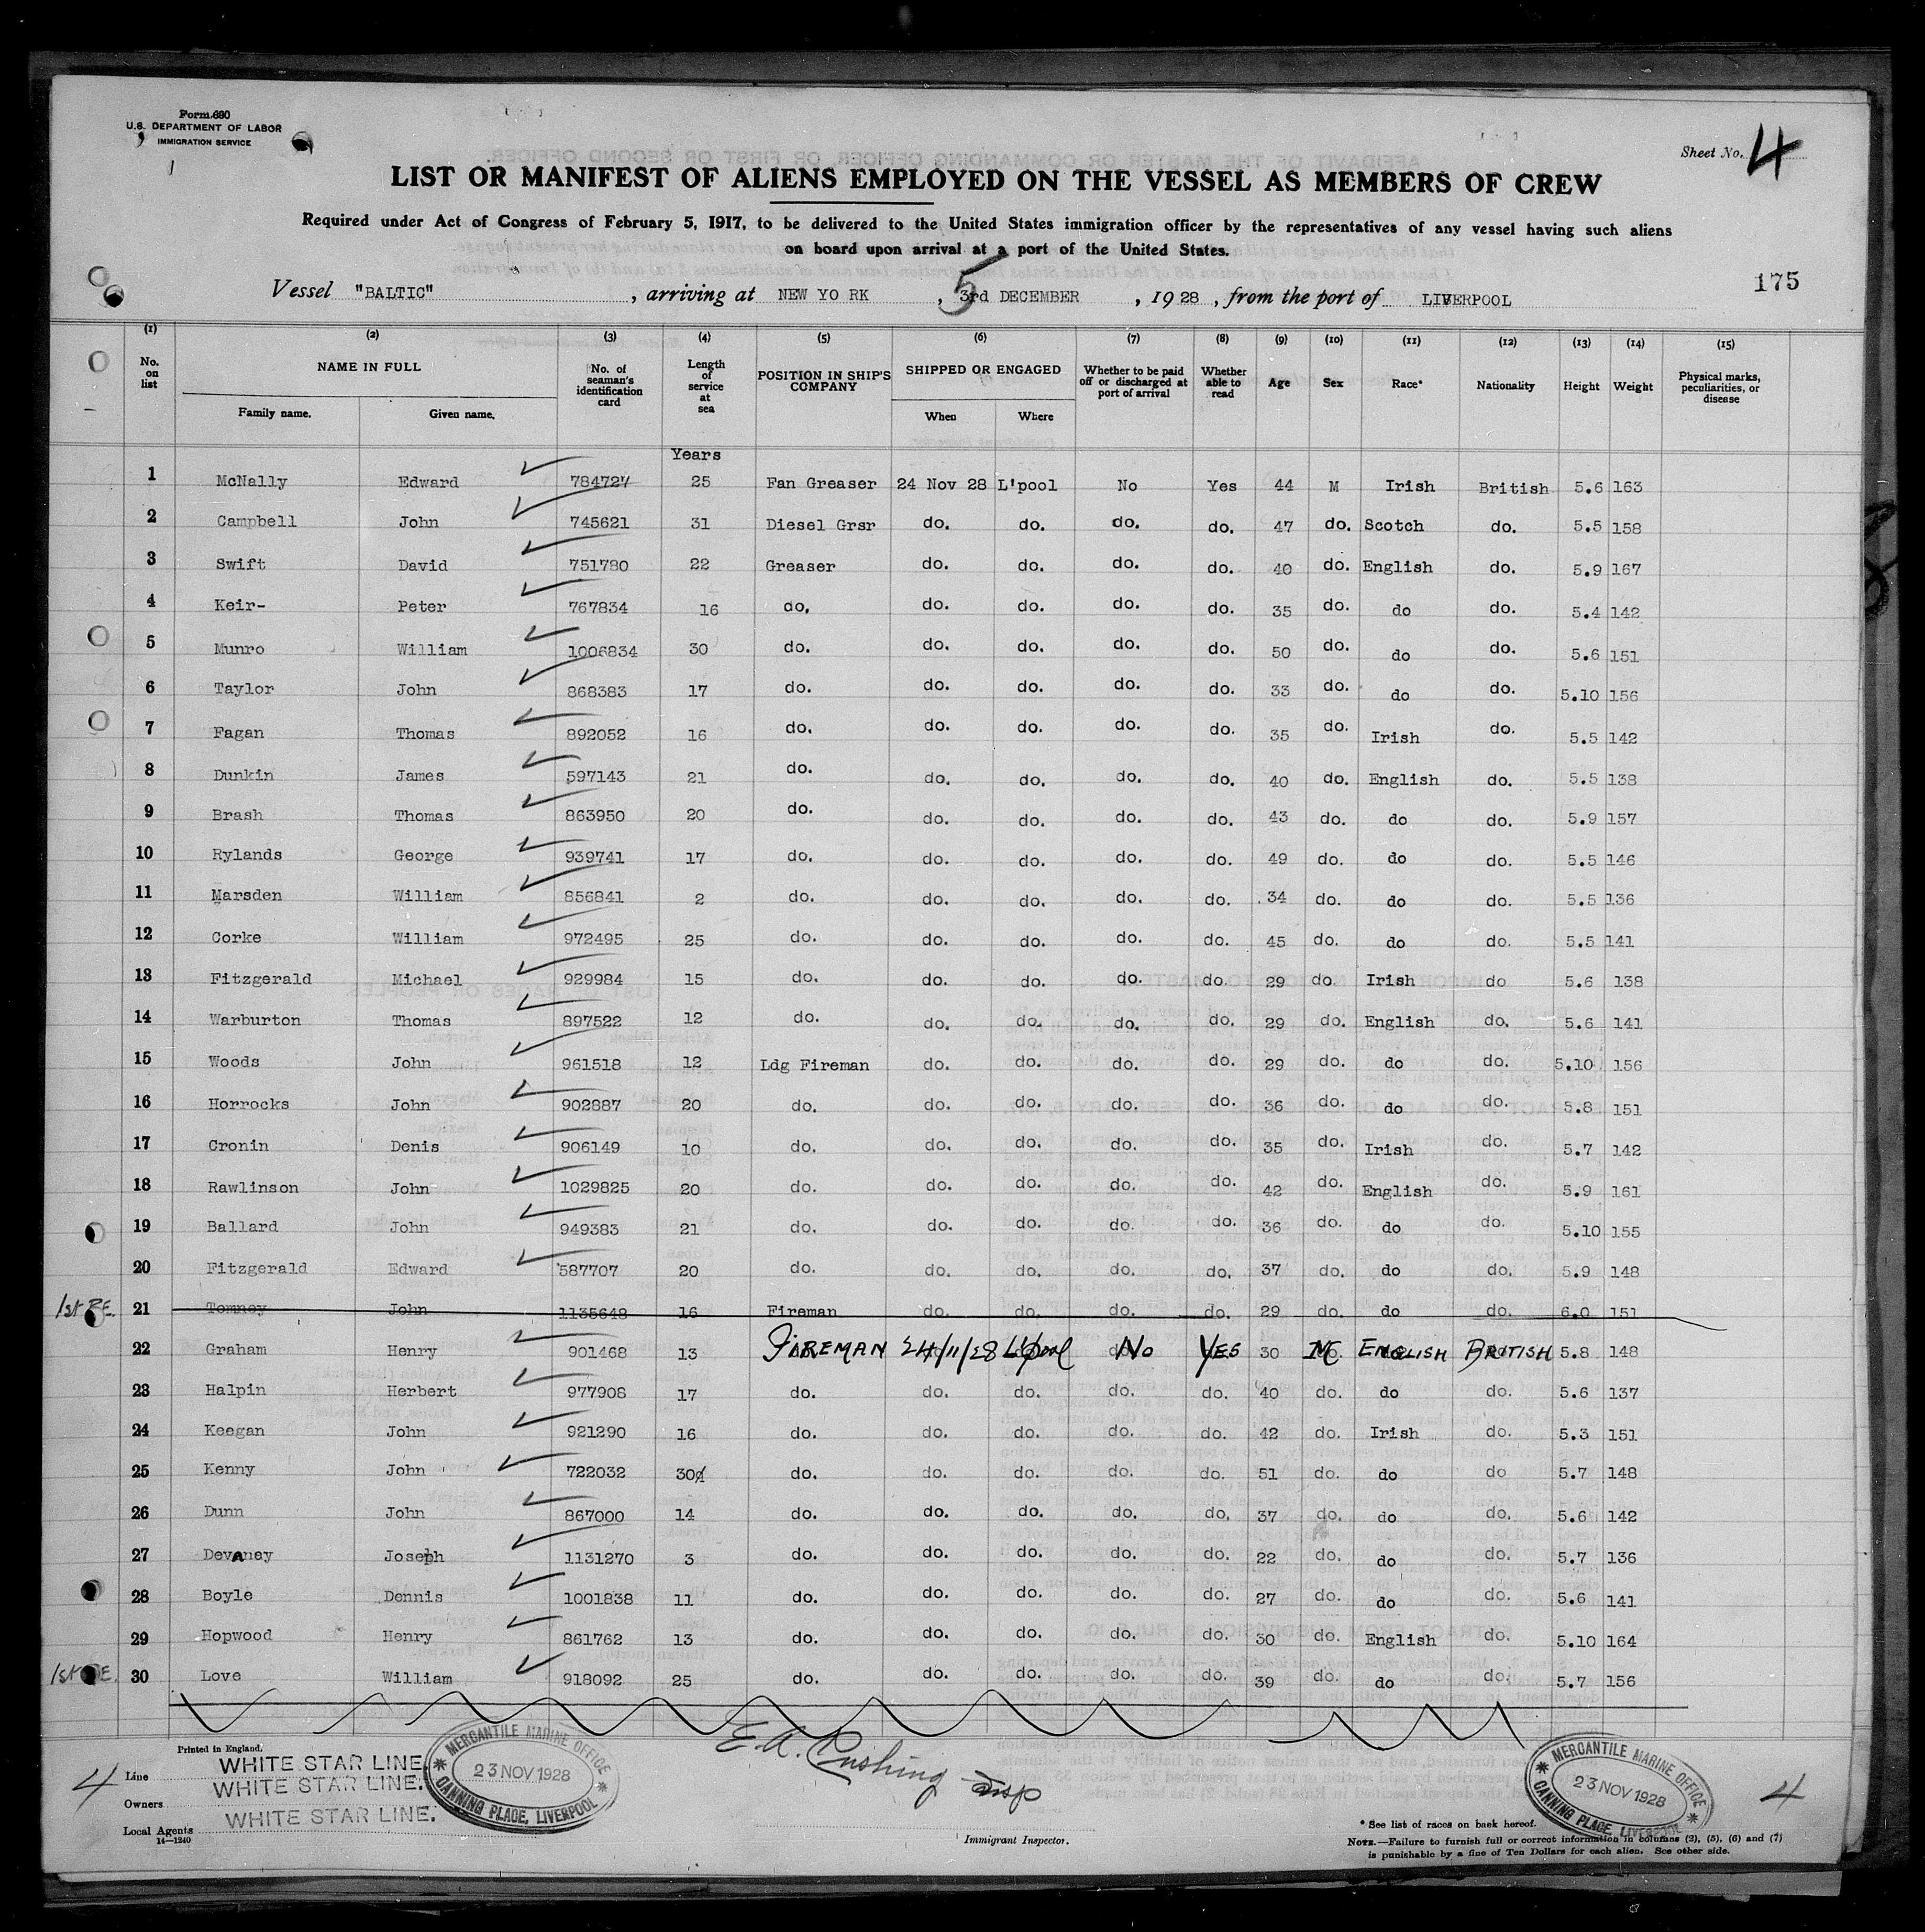 Form 680
U.S. DEPARTMENT OF LABOR
IMMIGRATION SERVICE
Sheet No. 4
LIST OR MANIFEST OF ALIENS EMPLOYED ON THE VESSEL AS MEMBERS OF CREW
Required under Act of Congress of February 5, 1917, to be delivered to the United States immigration officer by the representatives of any vessel having such aliens
on board upon arrival at a port of the United States.
175
Vessel "BALTIC", arriving at NEW YO RK, 5 3rd DECEMBER, 1928, from the port of LIVERPOOL
(1) (2) (3) (4) (5) (6) (7) (8) (9) (10) (11) (12) (13) (14) (15)
No. on list NAME IN FULL Family name. Given name. No. of seaman's identification card Length of service at sea POSITION IN SHIP'S COMPANY SHIPPED OR ENGAGED When Where Whether to be paid off or discharged at port of arrival Whether able to read Age Sex Race* Nationality Height Weight Physical marks, peculiarities, or disease
Years
1 McNally Edward 784727 25 Fan Greaser 24 Nov 28 L'pool No Yes 44 M Irish British 5.6 163
2 Campbell John 745621 31 Diesel Grsr do. do. do. do. 47 do. Scotch do. 5.5 158
3 Swift David 751780 22 Greaser do. do. do. do. 40 do. English do. 5.9 167
4 Keir- Peter 767834 16 do. do. do. do. do. 35 do. do do. 5.4 142
5 Munro William 1006834 30 do. do. do. do. do. 50 do. do do. 5.6 151
6 Taylor John 868383 17 do. do. do. do. do. 33 do. do do. 5.10 156
7 Fagan Thomas 892052 16 do. do. do. do. do. 35 do. Irish do. 5.5 142
8 Dunkin James 597143 21 do. do. do. do. do. 40 do. English do. 5.5 138
9 Brash Thomas 863950 20 do. do. do. do. do. 43 do. do do. 5.9 157
10 Rylands George 939741 17 do. do. do. do. do. 49 do. do do. 5.5 146
11 Marsden William 856841 2 do. do. do. do. do. 34 do. do do. 5.5 136
12 Corke William 972495 25 do. do. do. do. do. 45 do. do do. 5.5 141
13 Fitzgerald Michael 929984 15 do. do. do. do. do. 29 do. Irish do 5.6 138
14 Warburton Thomas 897522 12 do. do. do. do. do. 29 do. English do. 5.6 141
15 Woods John 961518 12 Ldg Fireman do. do. do. do. 29 do. do do. 5.10 156
16 Horrocks John 902887 20 do. do. do. do. do. 36 do. do do. 5.8 151
17 Cronin Denis 906149 10 do. do. do. do. do. 35 do. Irish do. 5.7 142
18 Rawlinson John 1029825 20 do. do. do. do. do. 42 do. English do. 5.9 161
19 Ballard John 949383 21 do. do. do. do. do. 36 do. do do. 5.10 155
20 Fitzgerald Edward 587707 20 do. do. do. do. do. 37 do. do do. 5.9 148
1st 21 Tomney John 1135648 16 Fireman do. do. do. do. 29 do. do do. 6.0 151
22 Graham Henry 901468 13 FIREMAN 24/11/28 L'pool No YES 30 M. ENGLISH BRITISH 5.8 148
23 Halpin Herbert 977908 17 do. do. do. do. do. 40 do. do do. 5.6 137
24 Keegan John 921290 16 do. do. do. do. do. 42 do. Irish do. 5.3 151
25 Kenny John 722032 30 do. do. do. do. do. 51 do. do do 5.7 148
26 Dunn John 867000 14 do. do. do. do. do. 37 do. do do. 5.6 142
27 Devaney Joseph 1131270 3 do. do. do. do. do. 22 do. do do. 5.7 136
28 Boyle Dennis 1001838 11 do. do. do. do. do. 27 do. do do. 5.6 141
29 Hopwood Henry 861762 13 do. do. do. do. do. 30 do. English do. 5.10 164
1st 30 Love William 918092 25 do. do. do. do. do. 39 do. do do. 5.7 156
Printed in England.
4 Line WHITE STAR LINE.
Owners WHITE STAR LINE.
Local Agents WHITE STAR LINE.
14—1240
MERCANTILE MARINE OFFICE
23 NOV 1928
CANNING PLACE, LIVERPOOL
E. A. Cushing Insp
Immigrant Inspector.
MERCANTILE MARINE OFFICE
23 NOV 1928
CANNING PLACE, LIVERPOOL
4
* See list of races on back hereof.
NOTE.—Failure to furnish full or correct information in columns (2), (5), (6) and (7)
is punishable by a fine of Ten Dollars for each alien. See other side.